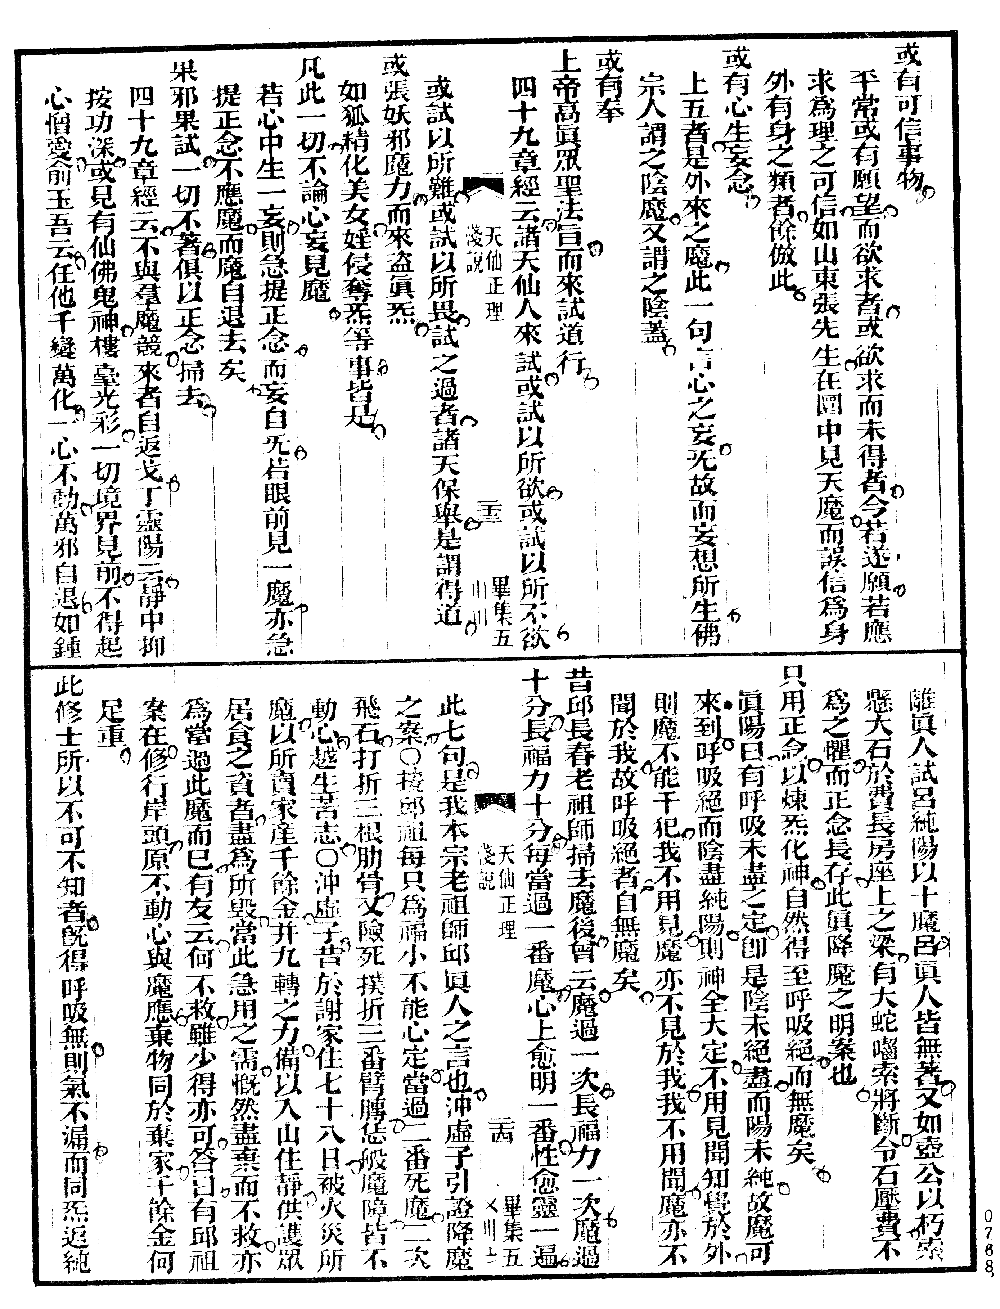 或有可信事物
平常或有願望而欲求者或欲求而未得者今若遂願若應
求爲理之可信如山東張先生在圜中見天魔而誤信爲身
外有身之類者餘倣此
或有心生妄念
上五者是外來之魔此一句言心之妄旡故而妄想所生佛
宗人謂之陰魔又謂之陰蓋
或有奉
上帝高眞眾聖法旨而來試道行
四十九章經云諸天仙人來試或試以所欲或試以所不欲
天仙正理
淺說
二十三
畢集五
或試以所難或試以所畏試之過者諸天保舉是謂得道
或張妖邪魔力而來盜眞炁
如狐精化美女婬侵奪炁等事皆是
凡此一切不論心妄見魔
若心中生一妄則急提正念而妄自旡若眼前見一魔亦急
提正念不應魔而魔自退去矣
果邪果試一切不著俱以正念掃去
四十九章經云不與羣魔競來者自返戈丁靈陽云靜中抑
按功深或見有仙佛鬼神樓臺光彩一切境界見前不得起
心憎愛俞玉吾云任他千變萬化一心不動萬邪自退如鍾
離眞人試呂純陽以十魔呂眞人皆無著又如壺公以朽索
懸大石於費長房座上之梁有大蛇囓索將斷令石壓費不
爲之懼而正念長存此眞降魔之明案也
只用正念以煉炁化神自然得至呼吸絕而無魔矣
眞陽曰有呼吸未盡之定卽是陰未絕盡而陽未純故魔可
來到呼吸絕而陰盡純陽則神全大定不用見聞知覺於外
則魔不能干犯我不用見魔亦不見於我我不用聞魔亦不
聞於我故呼吸絕者自無魔矣
昔邱長春老祖師掃去魔後曾云魔過一次長福力一次魔過
十分長福力十分每當過一番魔心上愈明一番性愈靈一遍
天仙正理
淺說
二十四
畢集五
此七句是我本宗老祖師邱眞人之言也沖虛子引證降魔
之案〇按邱祖每只爲福小不能心定當過二番死魔二次
飛石打折三根肋骨又險死撲折三番臂膊恁般魔障皆不
動心越生苦志〇沖虛子昔於謝家住七十八日被火災所
魔以所賣家産千餘金并九轉之力備以入山住靜供護眾
居食之資者盡爲所毁當此急用之需慨然盡棄而不救亦
爲當過此魔而已有友云何不救雖少得亦可答曰有邱祖
案在修行岸頭原不動心與魔應棄物同於棄家千餘金何
足重
此修士所以不可不知者旣得呼吸無則氣不漏而同炁追純
0788